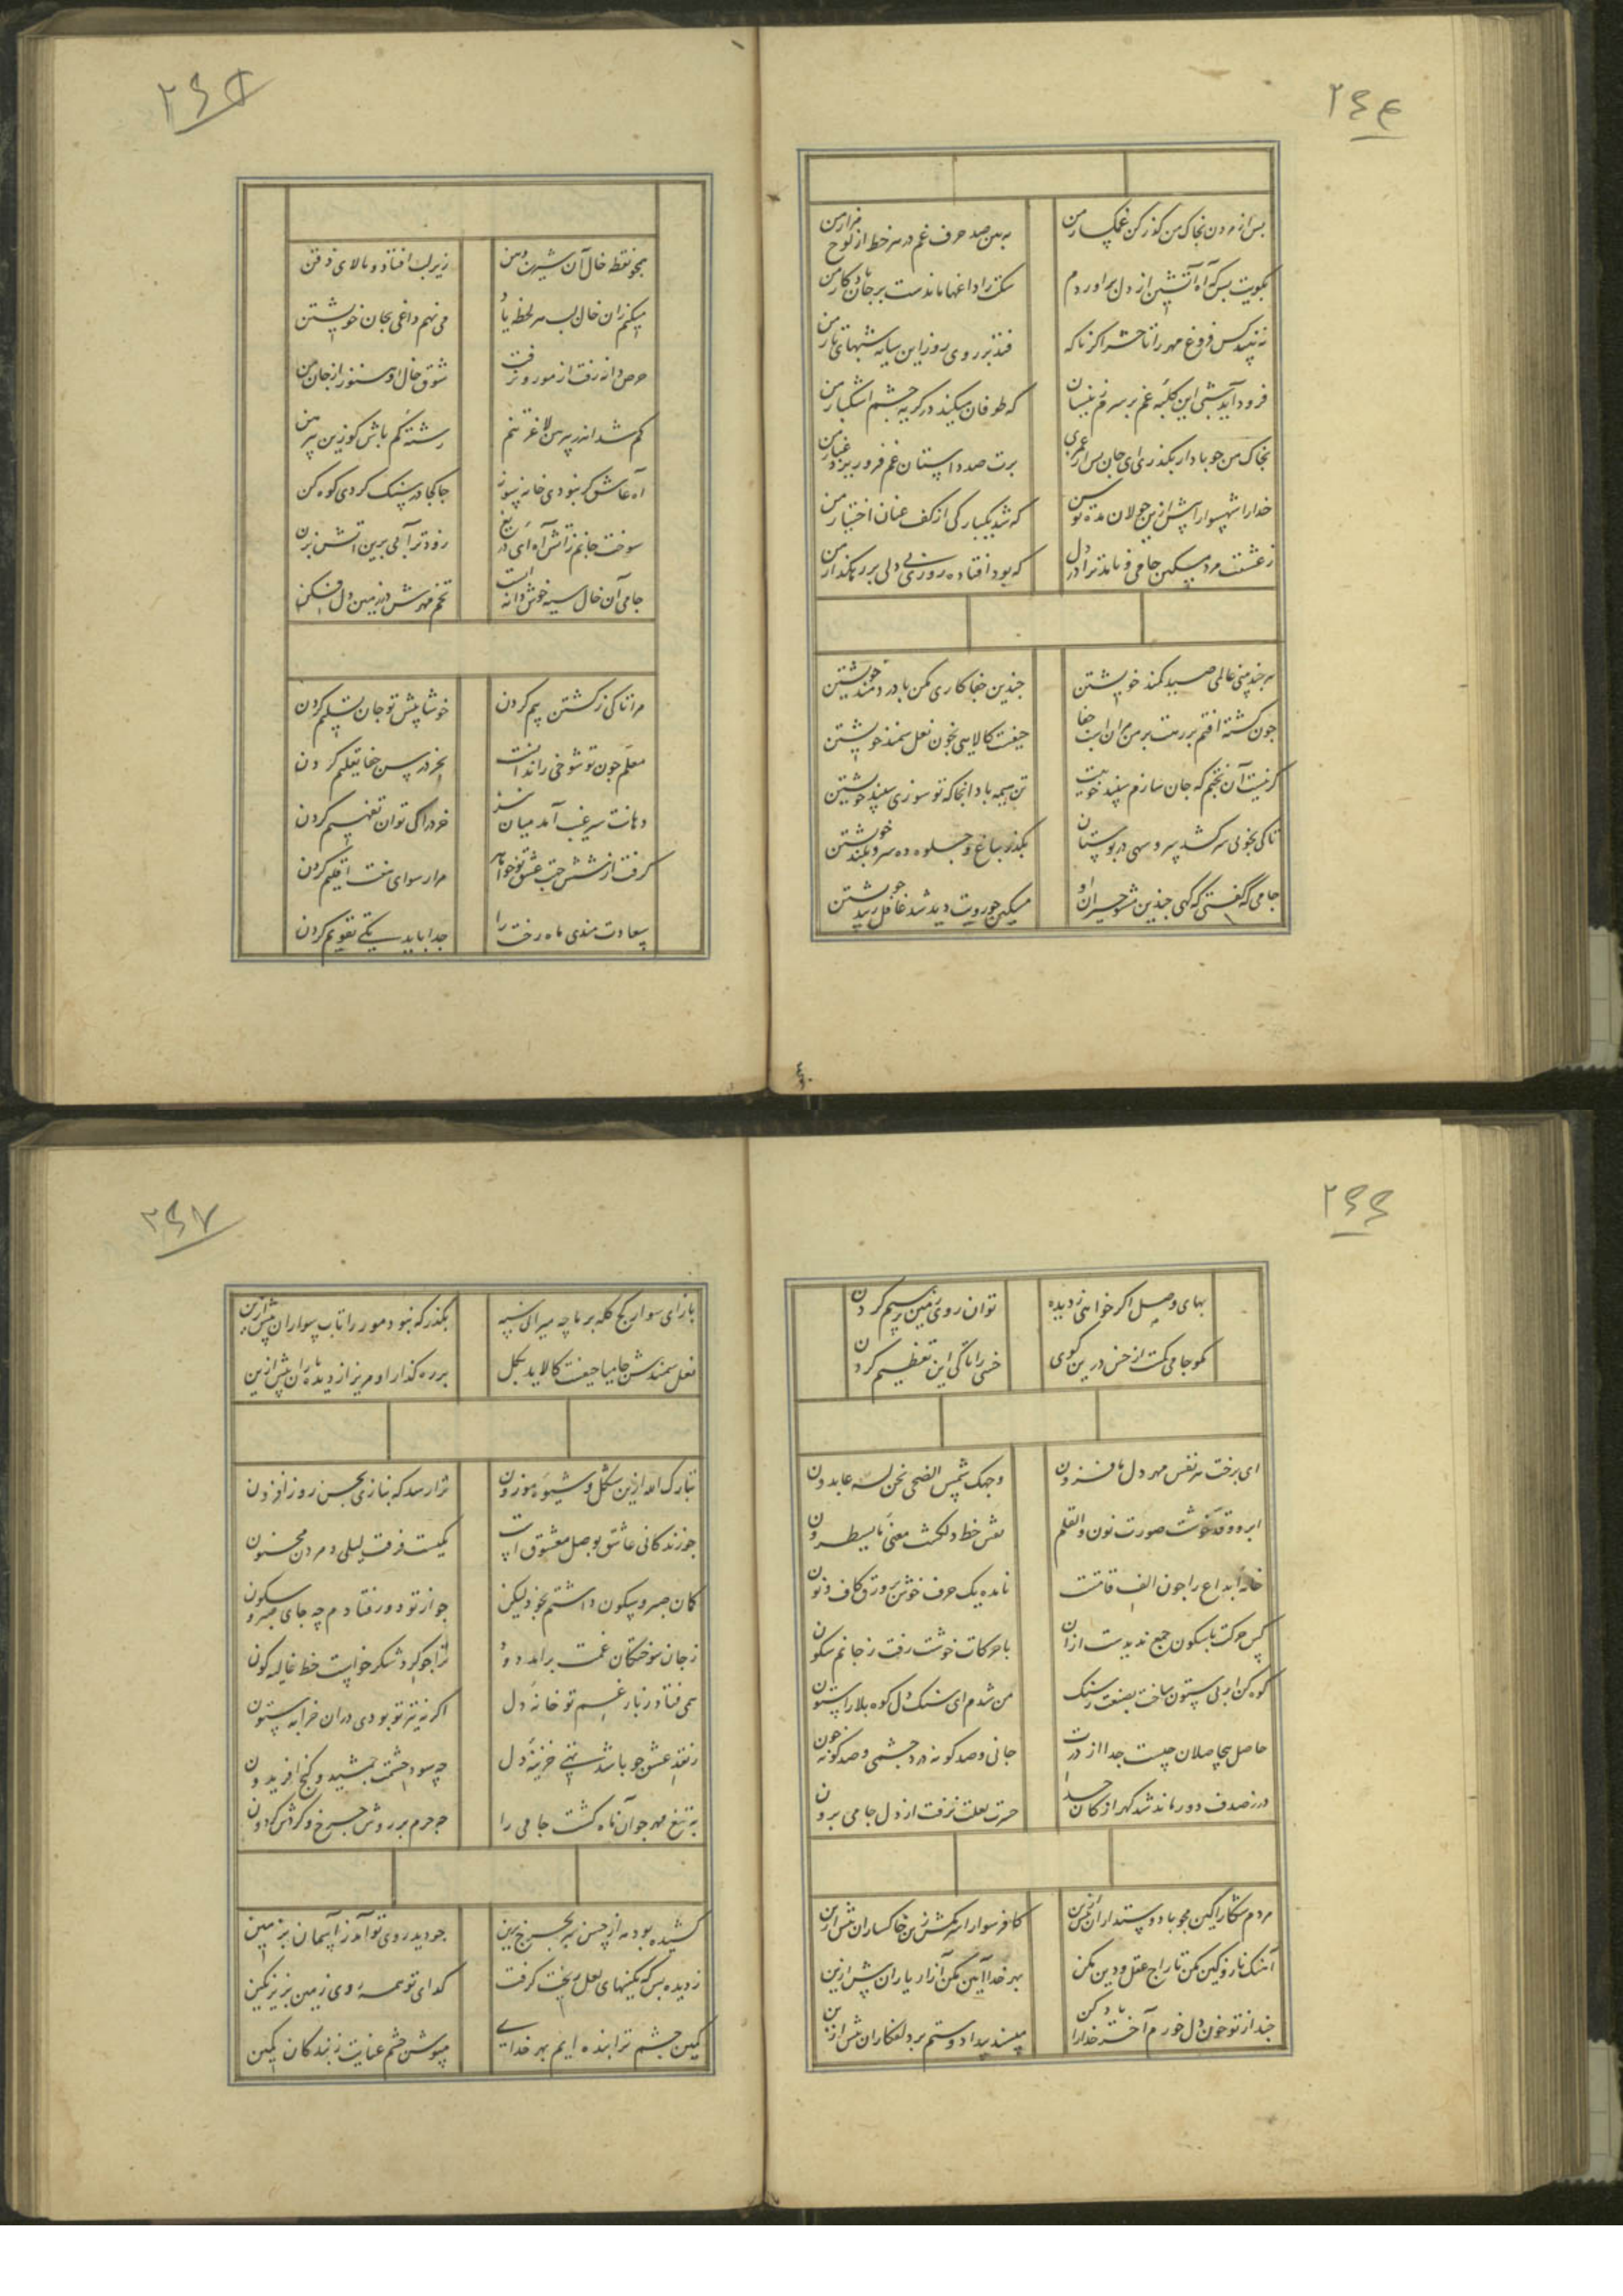 ۲۶۴
پس از مردن بخاک من گذر کن غمگسار من
ببین صد حرف غم در هر خط از لوح مزار من
بکویت بس که آه آتشین از دل براوردم
سکت را داغها ماندست بر جان یادکار من
نه بیند کس فروغ مهر را تا حشر اکر ناکه
فتد بر روی روز این سایه شبهای تار من
فرود آید شبی این کلبه غم بر سرم زینسان
که طوفان میکند در کریه چشم اشکبار من
بخاک من چو باد ار بکذری ای جان پس از عمری
برت صد داستان غم فرو ریزد غبار من
خدا را شهسوارا پیش ازین جولان مده توسن
که شد یکبارکی از کف عنان اختیار من
ز عشقت مرد مسکین جامی و نامد ترا در دل
که بود افتاده روزی بی دلی بر رهکذار من
هر چند بینی عالمی صید کمند خویشتن
چندین جفاکاری مکن با دردمند خویشتن
چون کشته افتم بر رهت بر من مران اسب جفا
حیفست کالایی بخون نعل سمند خویشتن
کر نیست آن بختم که جان سازم سپند خوبیت
تن هیمه باد انجا که تو سوزی سپند خویشتن
تا کی بخوبی سر کشد سرو سهی در بوستان
بکذر بباغ و جلوه ده سرو بلند خویشتن
جامی که کفتی که کهی چندین مشو حیران او
مسکین چو رویت دید شد غافل ز پند خویشتن
۲۶۵
همچو نقطه خال آن شیرین دهن
زیر لب افتاد و بالای ذقن
میکنم زان خال لب هر لحظه یاد
می نهم داغی بجان خویشتن
حرص دانه رفت از مور و نرفت
شوق خال او هنوز از جان من
کم شد اندر پیرهن لاغر تنم
رشته کم باش کو زین پیرهن
آه عاشق کر نبودی خانه سوز
جا کجا در سنک کردی کوه کن
سوخت جانم ز آتش آه ای دریغ
زودتر آبی برین آتش بزن
جامی آن خال سیه خوش دانه است
تخم مهرش در زمین دل فکن
مرا تا کی ز کشتن بیم کردن
خوشا پیش تو جان تسلیم کردن
معلم چون تو شوخی را ندانست
بجز درس جفا تعلیم کردن
دهانت سر غیب آمد میان نیز
خرد را کی توان تفهیم کردن
کرفت از شش جهت عشق تو خواهم
مرا رسوای هفت اقلیم کردن
سعادت مندی ماه رخت را
جدا باید یکی تقویم کردن
۲۶۶
بهای وصل اکر خواهی ز دیده
توان روی زمین پر سیم کردن
مکو جامی کمست از خس درین کوی
خسی را تا کی این تعظیم کردن
ای برخت هر نفس مهر دل ما فزون
وجهک شمس الضحی نحن له عابدون
ابرو و قد خوشت صورت نون والقلم
نقش خط دلکشت معنی ما یسطرون
خامه ابداع را چون الف قامتت
نامده یک حرف خوش بر ورق کاف و نون
کس حرکت با سکون جمع ندیدست ازان
با حرکات خوشت رفت ز جانم سکون
کوه کن ار بی ستون ساخت بصنعت ز سنک
من شدم ای سنک دل کوه بلا را ستون
حاصل بیحاصلان چیست جدا از درت
جانی و صد کونه درد چشمی و صد کونه خون
در ز صدف دور ماند شد کهر از کان جدا
حسرت لعلت نرفت از دل جامی برون
مردم شکارا کین مجو با دوستداران بیش ازین
کافر سوارا سر مکش زین خاکساران بیش ازین
آهنک ناز و کین مکن تاراج عقل و دین مکن
بهر خدا آیین مکن آزار یاران بیش ازین
چند از تو خون دل خورم آخر خدا را یاد کن
مپسند بیداد و ستم بر دلفکاران بیش ازین
۲۶۷
باز ای سوار کج کله بر ما چه میرانی سپه
بکذر که نبود مور را تاب سواران بیش ازین
نعل سمندش جامیا حیفست کالاید بکل
بر ره کذار او مریز از دیده باران بیش ازین
تبارک الله ازین شکل و شیوه موزون
ترا رسد که بنازی بحسن روز افزون
چو زندکانی عاشق بوصل معشوق است
یکیست فرقت لیلی و مردن مجنون
کمان صبر و سکون داشتم بخود لیکن
چو از تو دور فتادم چه جای صبر و سکون
ز جان سوختکان غمت برامد دود
ترا چو کرد شکر خواست خط غالیه کون
همی فتاد ز بار غم تو خانه دل
اکر نه تیر تو بودی دران خرابه ستون
ز نقد عشق چو باشد تهی خزینه دل
چه سود حشمت جمشید و کنج افریدون
به تیغ مهر چو آن ماه کشت جامی را
چه جرم بر روش چرخ و کردش کردون
کشیده بود مه از حسن سر بچرخ برین
چو دید روی تو آمد ز آسمان بزمین
ز دیده بس که نکینهای لعل ریخت کرفت
کدای تو همه روی زمین بزیر نکین
کمین چشم ترا بنده ایم بهر خدای
مپوش چشم عنایت ز بندکان کمین